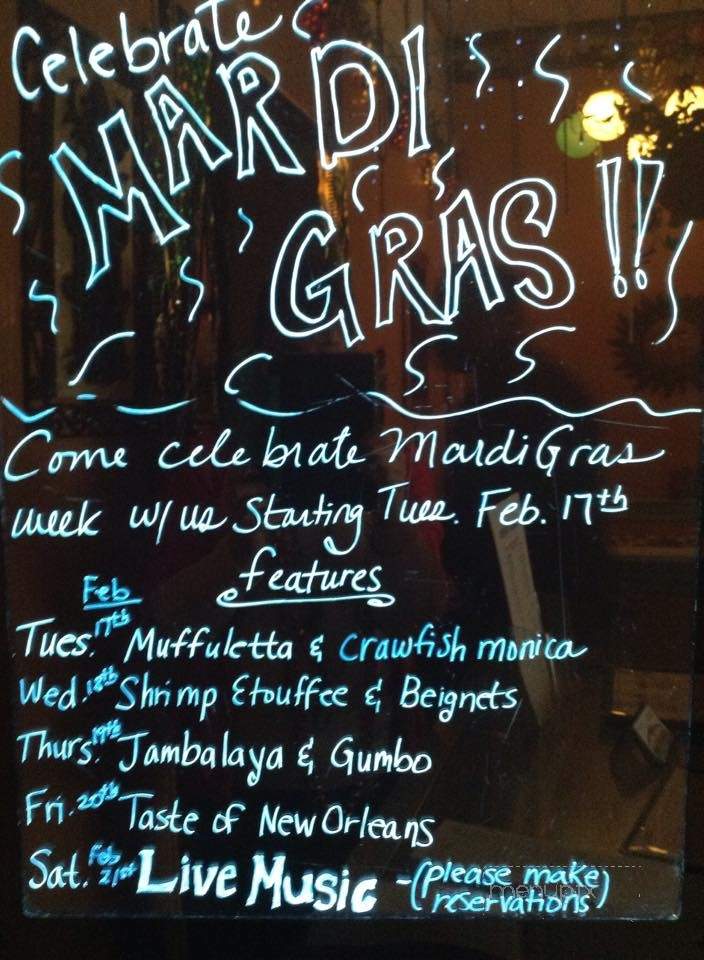 Celebrate
MARDI
GRAS !!
Come celebrate Mardi Gras
week w/ us Starting Tues. Feb. 17th
features
Feb
Tues. 17th Muffuletta & Crawfish monica
Wed. 18th Shrimp Etouffee & Beignets
Thurs. 19th Jambalaya & Gumbo
Fri. 20th Taste of New Orleans
Sat. Feb 21st Live Music - (please make
reservations)
menupix